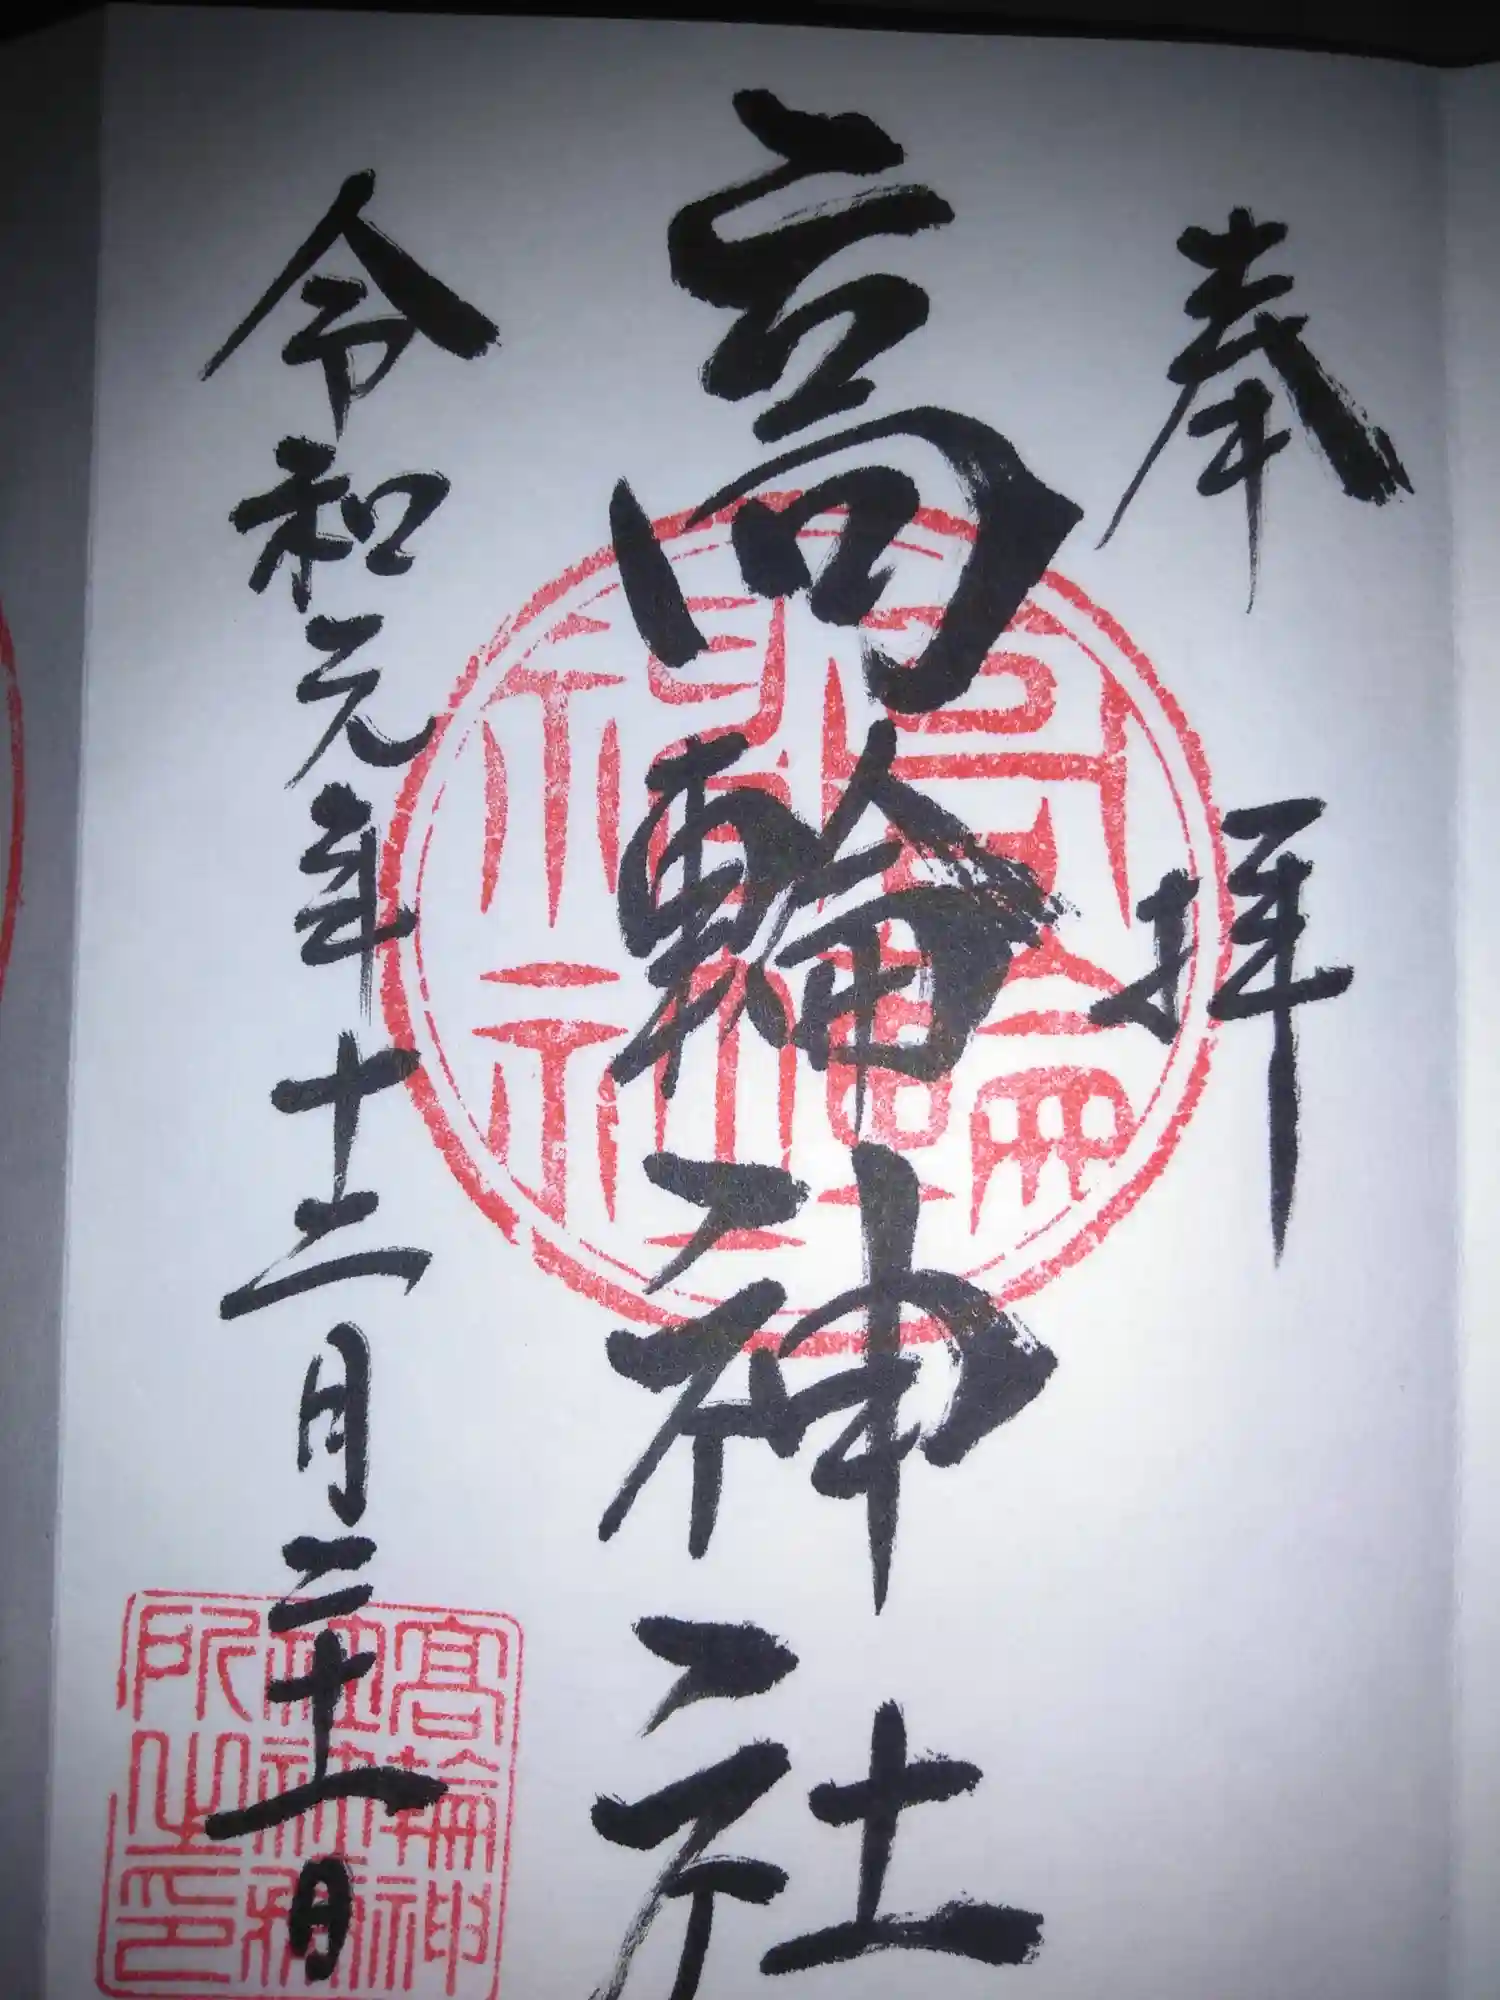 奉拝
高輪神社
令和元年十二月二十一日
高輪
神社
高輪神
社社務
所之印